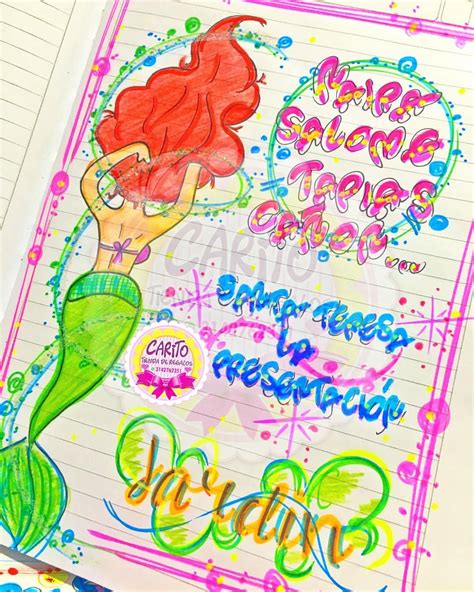 Naira
Salome
Tapias
Cañon...
Santa Teresa
La
Presentación
CARITO
TIENDA DE REGALOS
Jardín
CARITO